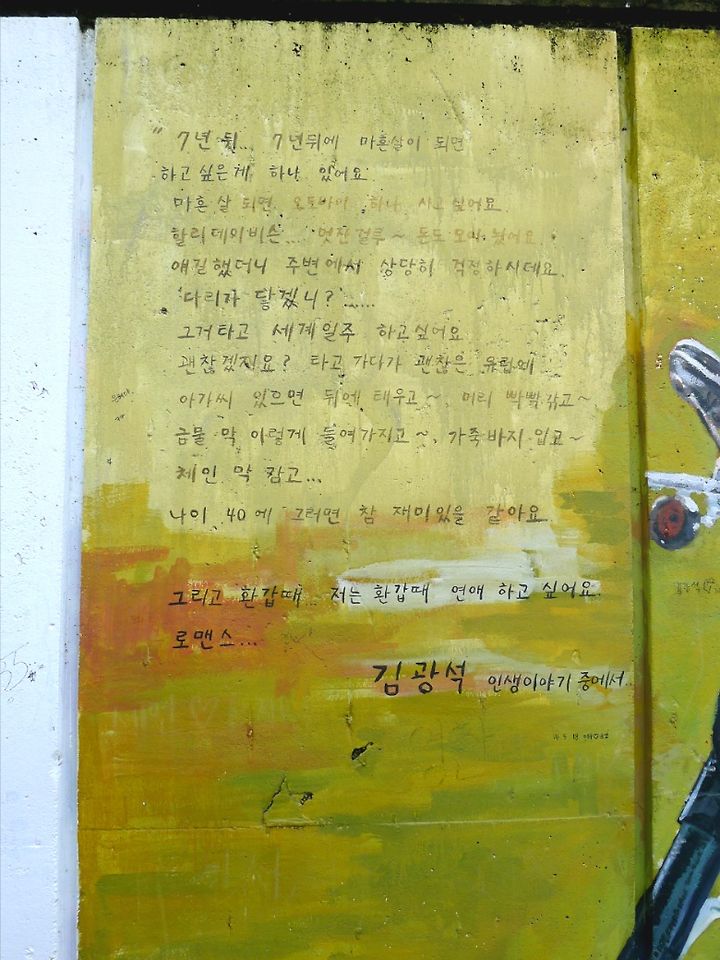 " 7년 뒤... 7년뒤에 마흔살이 되면
하고 싶은게 하나 있어요
마흔 살 되면 오토바이 하나 사고 싶어요
할리데이비슨... 멋진걸루~ 돈도 모아 놨어요
얘길했더니 주변에서 상당히 걱정하시데요.
'다리가 닿겠니?'......
그거타고 세계일주 하고싶어요
괜찮겠지요? 타고 가다가 괜찮은 유럽에
아가씨 있으면 뒤에 태우고~, 머리 빡빡깎고~
금물 막 이렇게 들여가지고~, 가죽바지 입고~
체인 막 감고...
나이 40에 그러면 참 재미있을 것 같아요
그리고 환갑때.. 저는 환갑때 연애 하고 싶어요.
로맨스...
김광석 인생이야기 중에서..